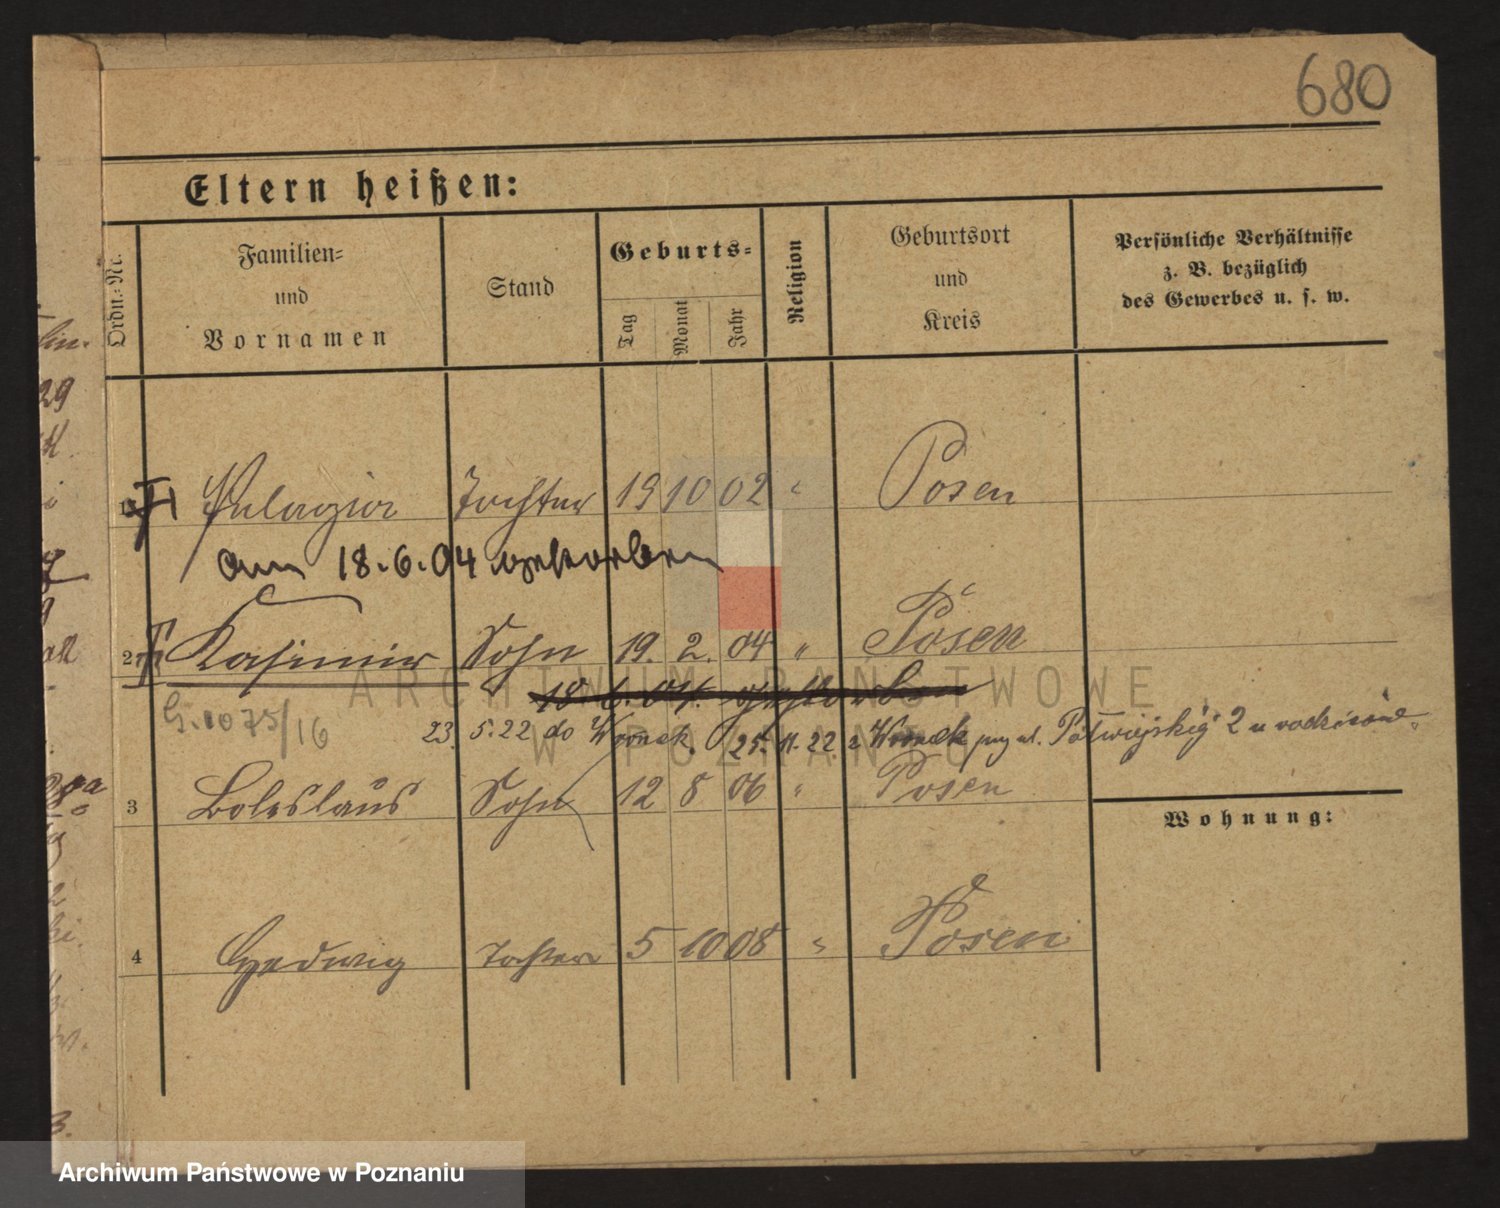 680
Eltern heißen:
Ordn.-Nr.
Familien-
und
Vornamen
Stand
Geburts-
Tag
Monat
Jahr
Religion
Geburtsort
und
Kreis
Persönliche Verhältnisse
z. B. bezüglich
des Gewerbes u. s. w.
Pelagia Tochter 19 10 02 " Posen
am 18.6.04 gestorben
2 Kasimir Sohn 19. 2. 04 " Posen
18.6.04. gestorben
G. 1075/16
23. 5.22 do Wronek. 25. 11. 22 z Wronek przy ul. 2 u rodziców
3 Boleslaus Sohn 12 8 06 " Posen
Wohnung:
4 Hedwig Tochter 5 10 08 " Posen
ARCHIWUM PAŃSTWOWE
W POZNANIU
Archiwum Państwowe w Poznaniu